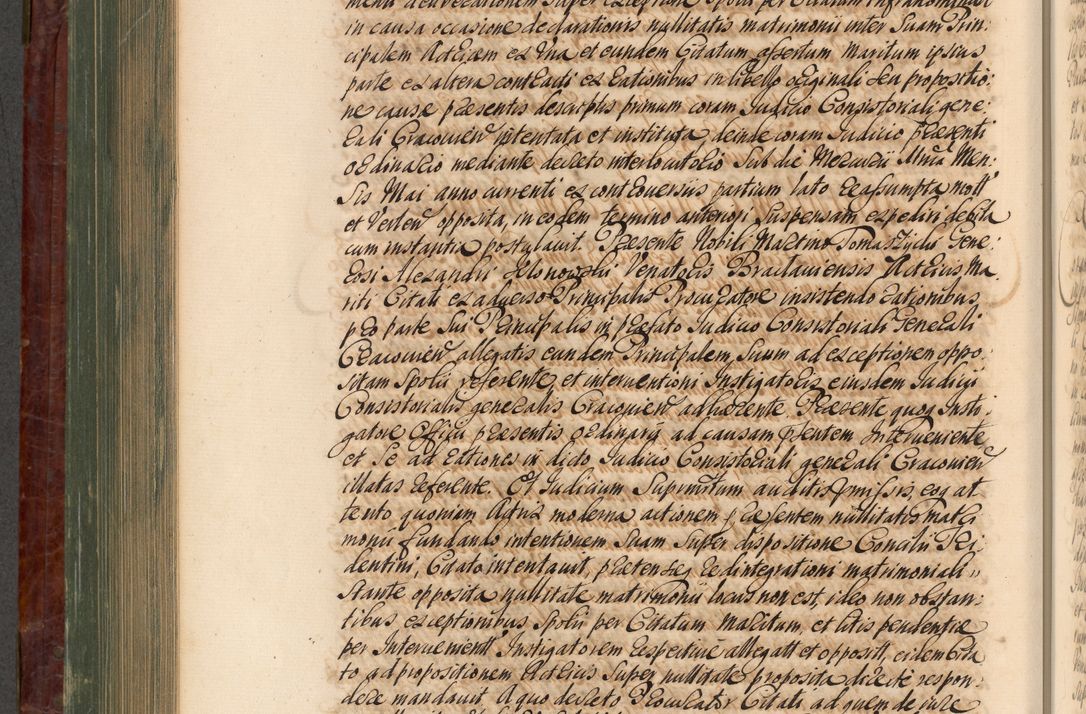 in causa occasione declarationis nullitatis matrimonii inter Suam Prin-
cipalem Actricem ex Una et eundem Citatum assertum Maritum ipsius
parte ex altera contractis ex rationibus in libello originali seu propositio-
ne causæ præsentis descriptis primum coram Judicio Consistoriali gene-
rali Cracovien intentata et instituta, deinde coram Judicio præsenti
ordinario mediante decreto interlocutorio Sub die Mercurii Men-
sis Mai anno currenti ex controversiis partium lato reassumpta
et Verten opposita, in eodem termino anteriori Suspensam, expediri debita
cum instantia postulavit. Præsente Nobili Martino Tomaszycki Gene-
rosi Alexandri Venatoris Braclaviensis Actricis Ma-
riti Citati ex adverso Principalis Procuratore insistendo rationibus
pro parte Sui Principalis in præfato Judicio Consistoriali Generali
Cracovien allegatis eundem Principalem Suum ad exceptionem oppo-
sitam Spolii referente, et interventioni Instigatoris ejusdem Judicii
Consistorialis generalis Cracovien adhærente. Præsente quoq Insti-
gatore Officii præsentis ordinarii ad causam pſentem Interveniente
et Se ad rationes in dicto Judicio Consistoriali generali Cracovien
illatas referente. Et Judicium Supremum auditis pmissis, eoq at-
tento quoniam Actrix moderna actionem præsentem nullitatis matri-
monii fundando intentionem Suam Super dispositione Concilii Tri-
dentini, Citato intentavit, prætensæq redintegrationi matrimoniali
Stante opposita nullitate matrimonii locus non est, ideo non obstan-
tibus exceptionibus Spolii per Citatum Maritum, et litis pendentiæ
per Intervenientt Instigatorem respective allegatt et oppositt, eidem Cita-
to ad propositionem Actricis Super nullitate proposita directe respon-
dere mandavit. A quo decreto Procurator Citati, ad quem de jure